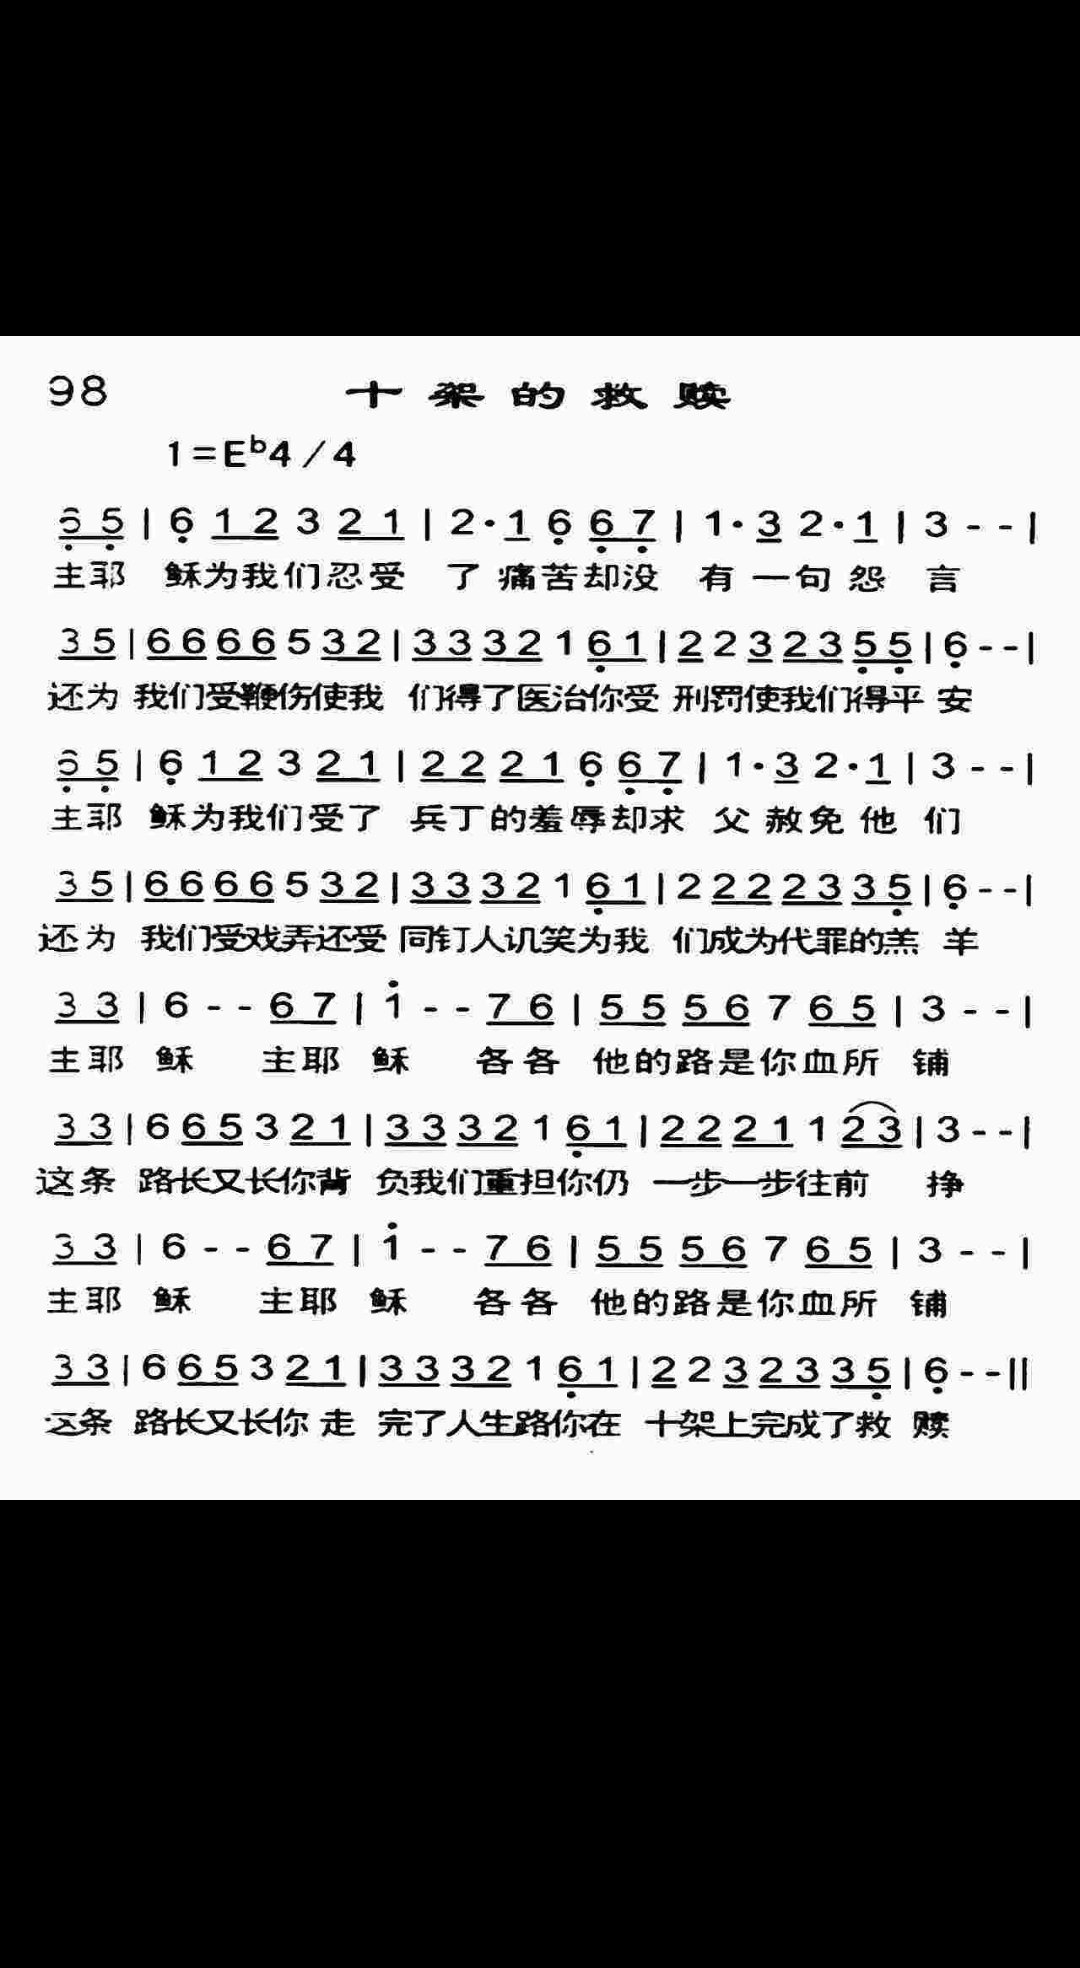 98 十架的救赎
1=E♭4/4
6 5 | 6 1 2 3 2 1 | 2· 1 6 6 7 | 1· 3 2· 1 | 3 - - |
主耶 稣为我们忍受 了痛苦却没 有一句怨 言
3 5 | 6 6 6 6 5 3 2 | 3 3 3 2 1 6 1 | 2 2 3 2 3 5 5 | 6 - - |
还为 我们受鞭伤使我 们得了医治你受 刑罚使我们得平 安
6 5 | 6 1 2 3 2 1 | 2 2 2 1 6 6 7 | 1· 3 2· 1 | 3 - - |
主耶 稣为我们受了 兵丁的羞辱却求 父赦免他 们
3 5 | 6 6 6 6 5 3 2 | 3 3 3 2 1 6 1 | 2 2 2 2 3 3 5 | 6 - - |
还为 我们受戏弄还受 同钉人讥笑为我 们成为代罪的羔 羊
3 3 | 6 - - 6 7 | 1 - - 7 6 | 5 5 5 6 7 6 5 | 3 - - |
主耶 稣 主耶 稣 各各 他的路是你血所 铺
3 3 | 6 6 5 3 2 1 | 3 3 3 2 1 6 1 | 2 2 2 1 1 2 3 | 3 - - |
这条 路长又长你背 负我们重担你仍 一步一步往前 挣
3 3 | 6 - - 6 7 | 1 - - 7 6 | 5 5 5 6 7 6 5 | 3 - - |
主耶 稣 主耶 稣 各各 他的路是你血所 铺
3 3 | 6 6 5 3 2 1 | 3 3 3 2 1 6 1 | 2 2 3 2 3 3 5 | 6 - - ||
这条 路长又长你走 完了人生路你在 十架上完成了救 赎